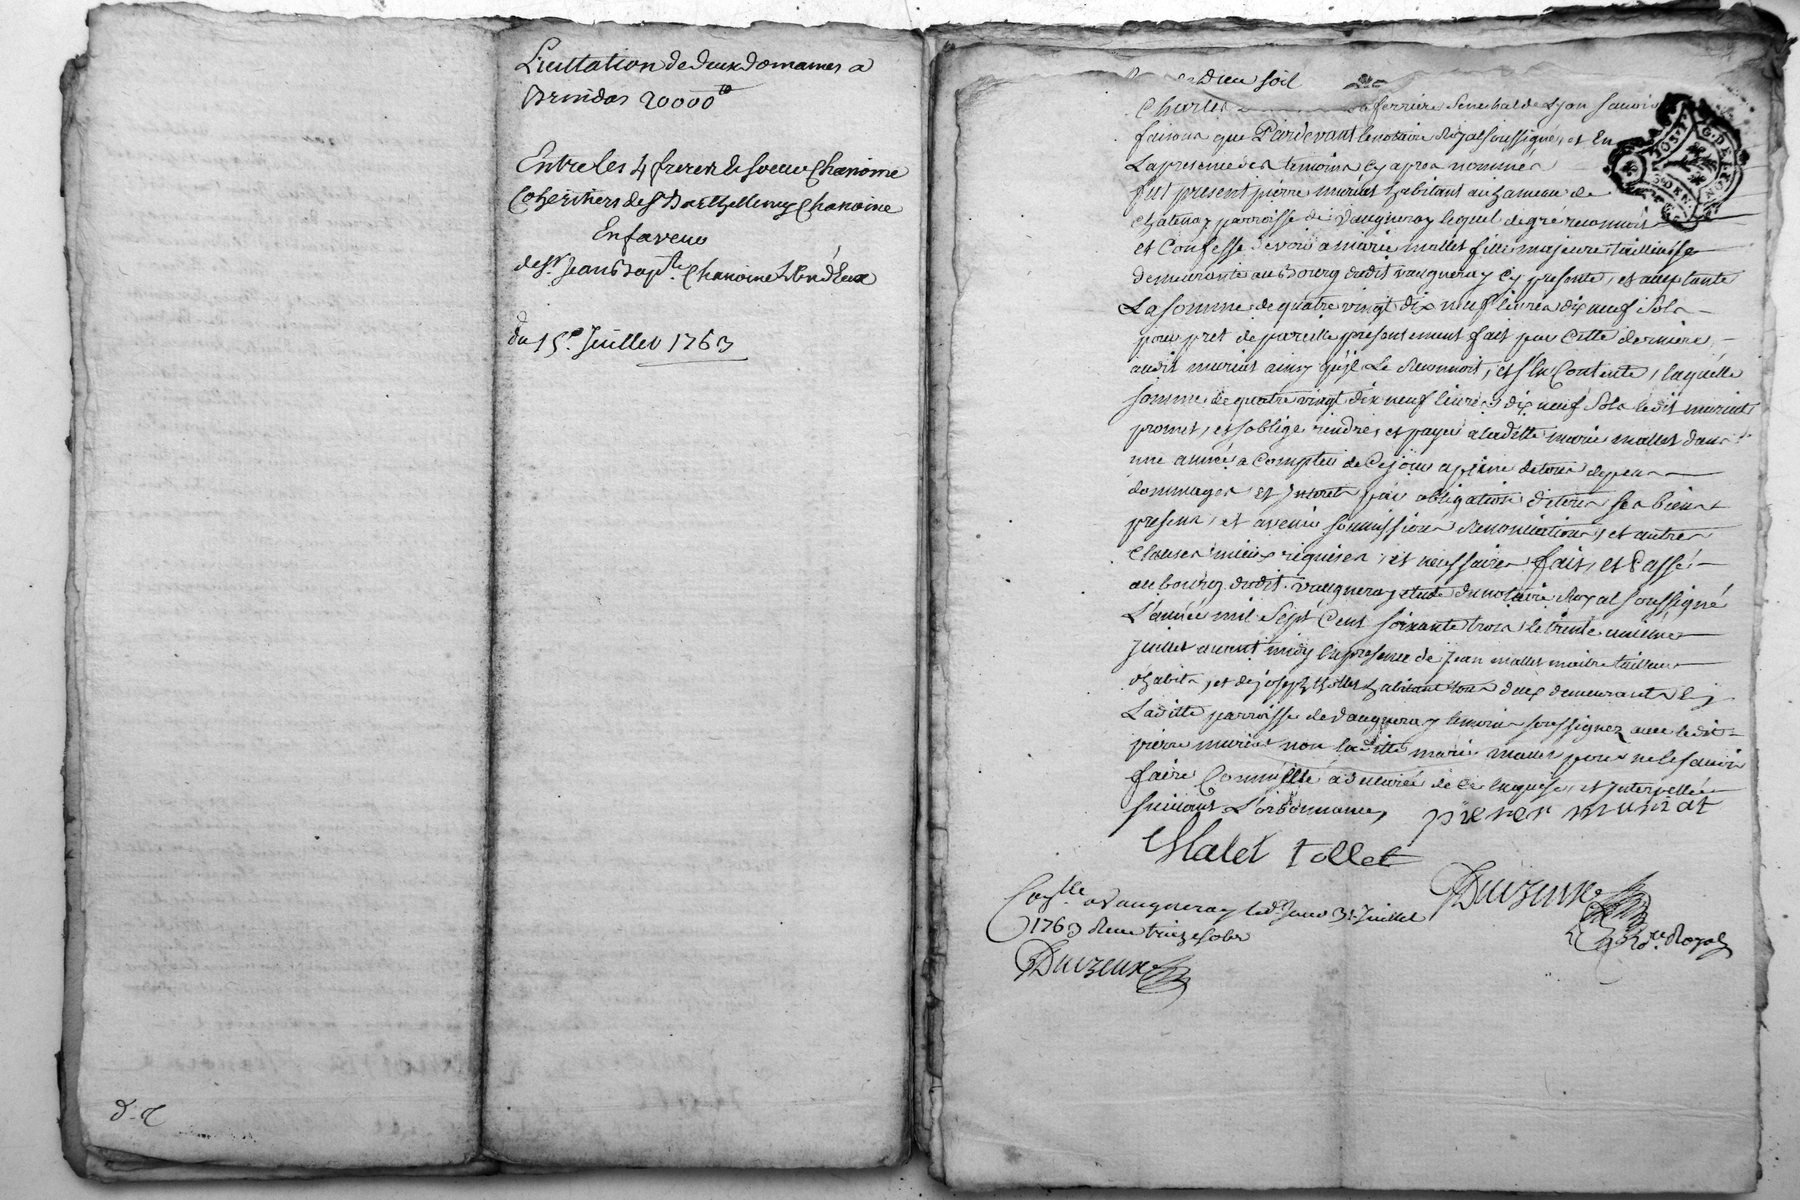 Licitation de deux domaines a
Brindas 20000 ₶
Entre les 4 freres & soeur Chanoine
Coheritiers de Sr Barthelemy Chanoine
En faveur
de Sr Jean Bapte. Chanoine L'un d'Eux
du 15e. Juillet 1763
d. r
Dieu soit
Charles ferriere Senechal de Lyon savoir
faisons que Pardevant le notaire Royal soussigné, et En
La presence des temoins cy apres nommés
fut present pierre muriat habitant au hameau de
Chatenay parroisse de Vaugneray lequel de gré reconnoit
et Confesse devoir a marie mallet fille majeure tailleuse
demeurante au Bourg dudit vaugneray Cy presente, et acceptante
La somme de quatre vingt dix neuf livres dix neuf sols
pour pret de pareille presentement fait par Cette derniere
audit muriat ainsy qu'il Le Reconnoit, et s'en Contente, laquelle
somme de quatre vingt dix neuf livres dix neuf sols ledit muriat
promet, et s'oblige rendre, et payer a laditte marie mallet dans
une année a Compter de Ce jour a peine de tous depens
dommages et Interets par obligation de tous ses biens
presens, et avenir soumissions Renonciations, et autres
Clauses mieux requises, et necessaires fait, et Passé
au bourg dudit vaugneray etude du notaire Royal soussigné
L'année mil Sept Cent soixante trois le trente unieme
Juillet avant midy En presence de Jean mallet maitre tailleur
d'habits, et de joseph thollet habitant tous deux demeurants En
Laditte parroisse de Vaugneray temoins soussignez avec ledit
pierre muriat non laditte marie mallet pour ne le savoir
faire Comme Elle a declaré de Ce Enquise, et Interpellée
suivant L'ordonnance, pierer murat
Malet tollet
Duizeux
Nore. Royal
à Vaugneray led. Jour 31 Juillet
1763 Recu treize sols
Duizeux